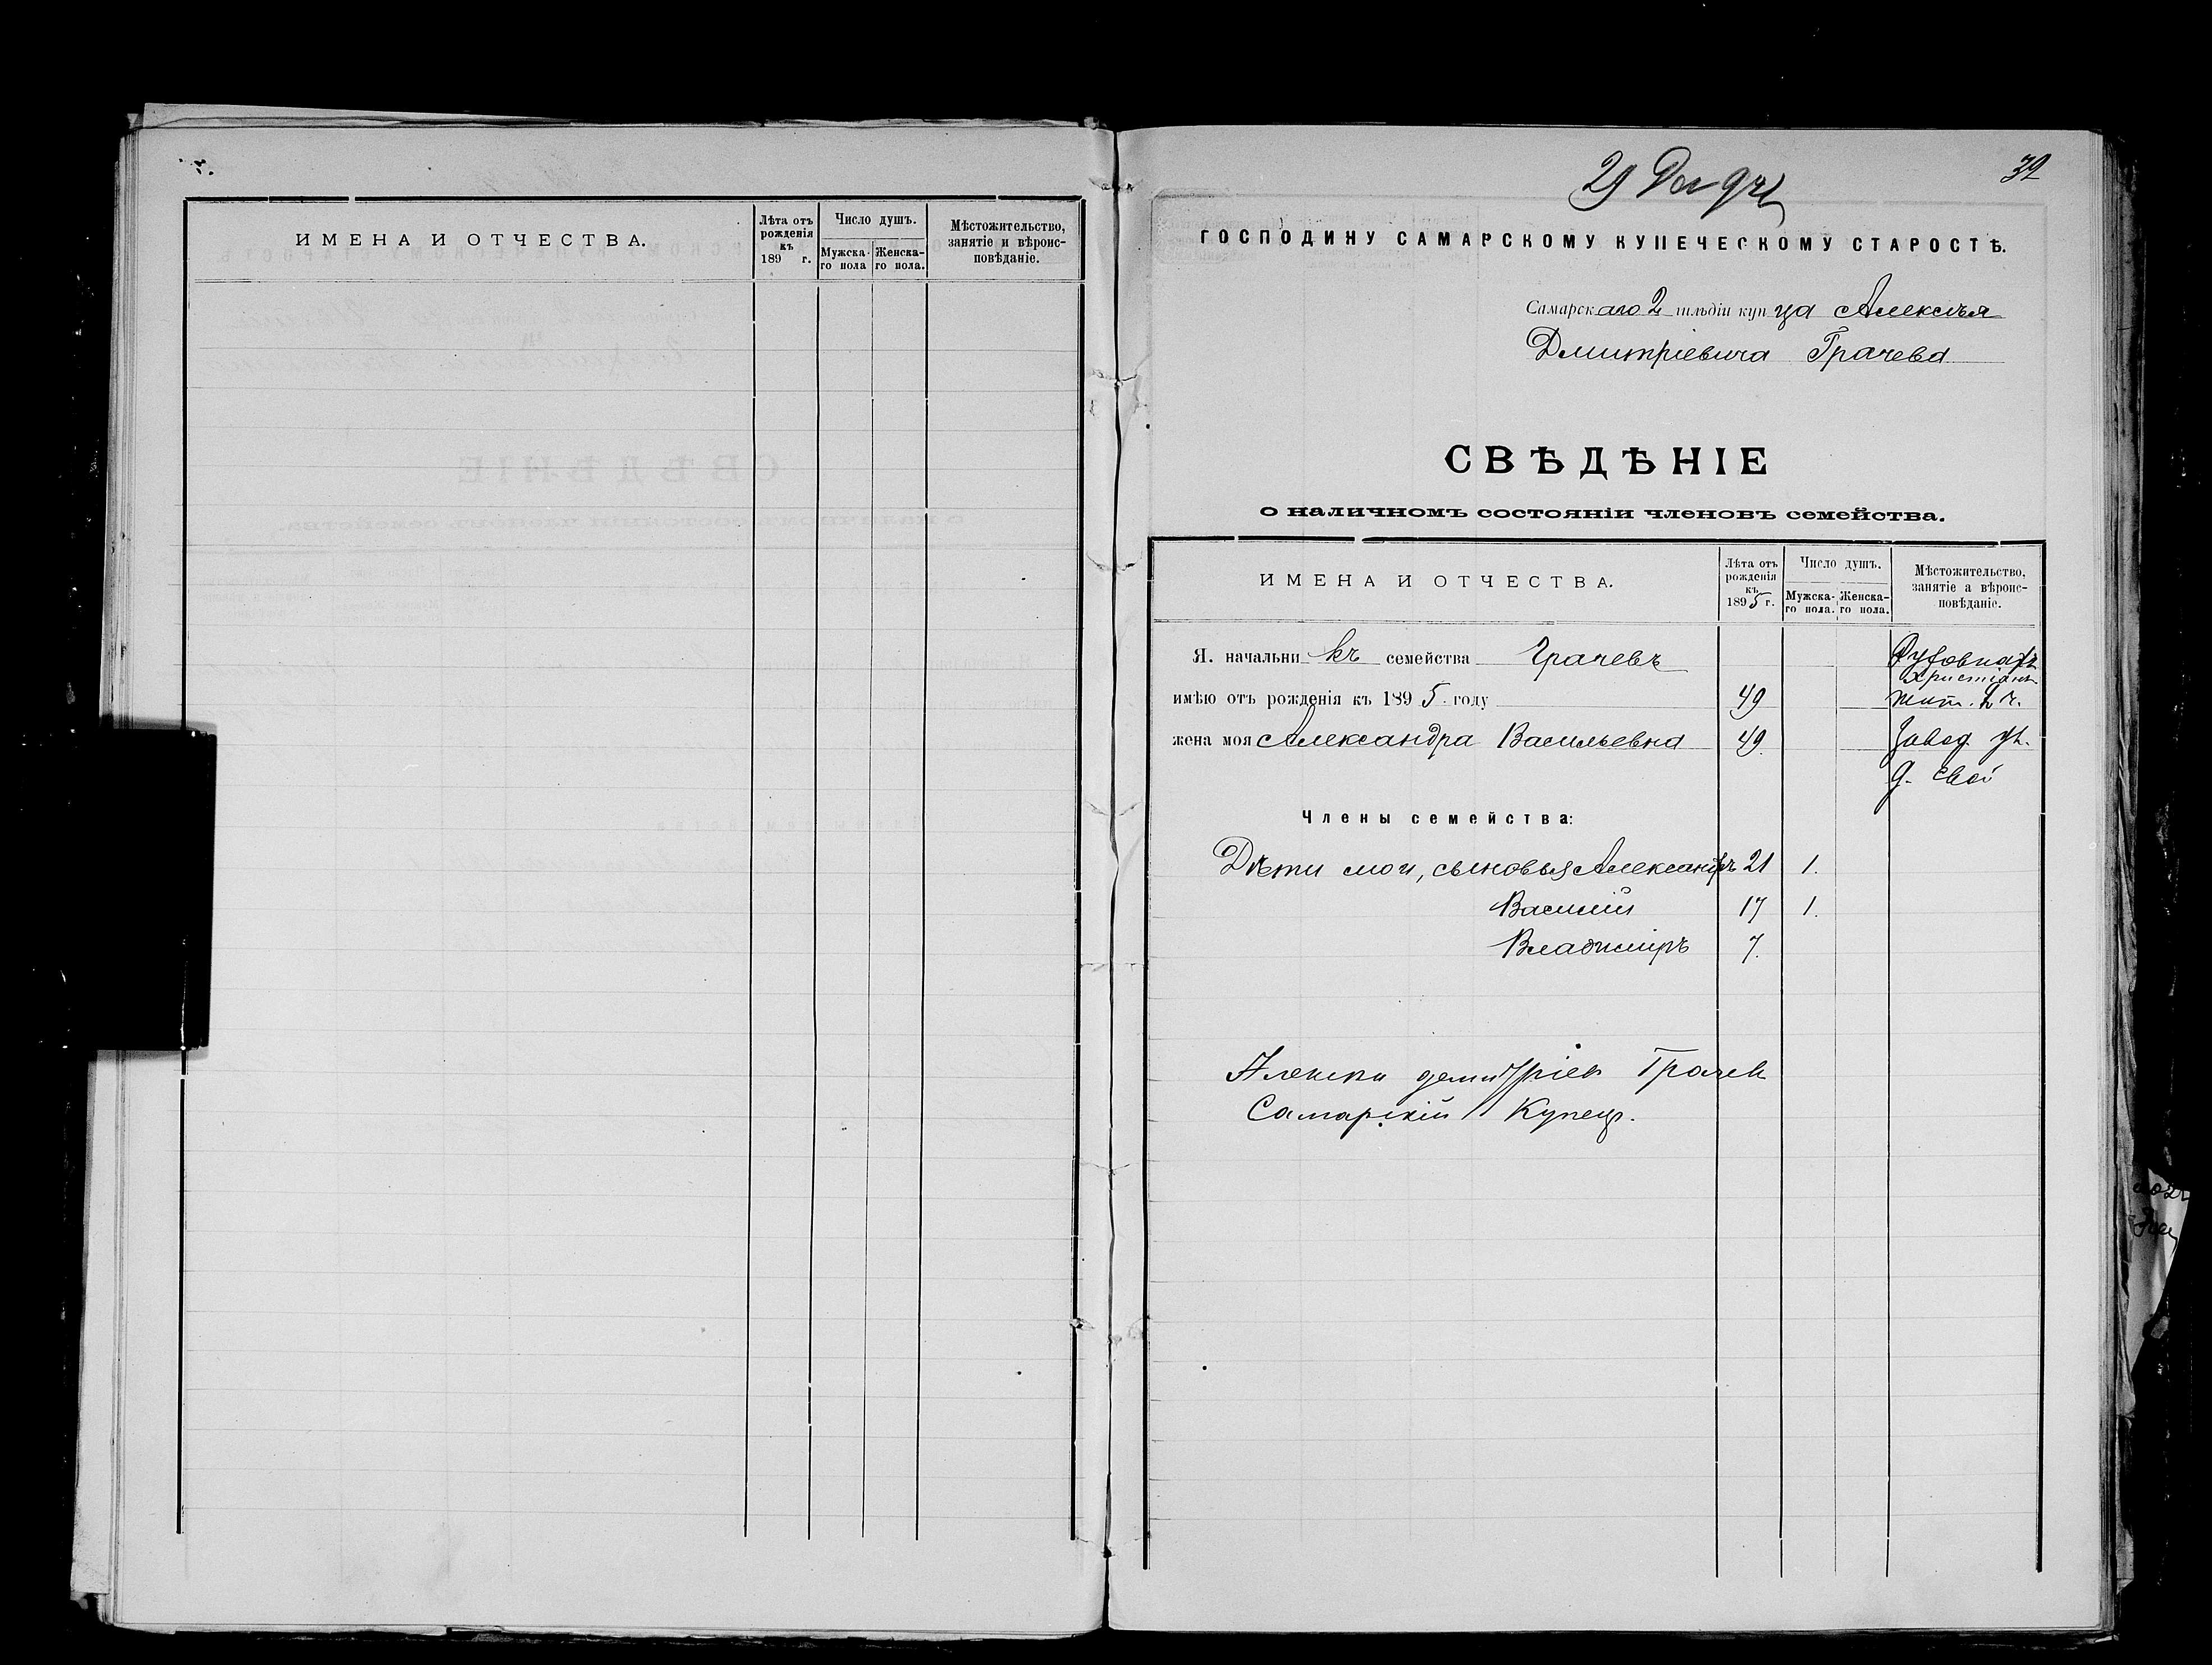 ИМЕНА И ОТЧЕСТВА.
Лѣта отъ рожденія къ 189 г.
Число душъ.
Мужска-го пола
Женска-го пола.
Мѣстожительство, занятіе и вѣроис-повѣданіе.
32
29 Дек 94
ГОСПОДИНУ САМАРСКОМУ КУПЕЧЕСКОМУ СТАРОСТѢ.
Самарскаго 2 гильдіи купца Алексѣя
Дмитріевича Грачева
СВѢДѢНІЕ
о наличномъ состояніи членовъ семейства.
ИМЕНА И ОТЧЕСТВА.
Лѣта отъ рожденія къ 1895 г.
Число душъ.
Мужска-го пола.
Женска-го пола.
Мѣстожительство, занятіе а вѣроис-повѣданіе.
Я. начальникъ семейства Грачевъ
Духовныхъ
христіанъ
имѣю отъ рожденія къ 1895 году 49 жит. 2 ч.
жена моя Александра Васильевна 49. Завод. ул.
д. свой
Члены семейства:
Дѣти мои, сыновья Александръ 21 1.
Василій 17 1.
Владиміръ 7.
Алекси демитріев Грачев
Самарскій Купец.